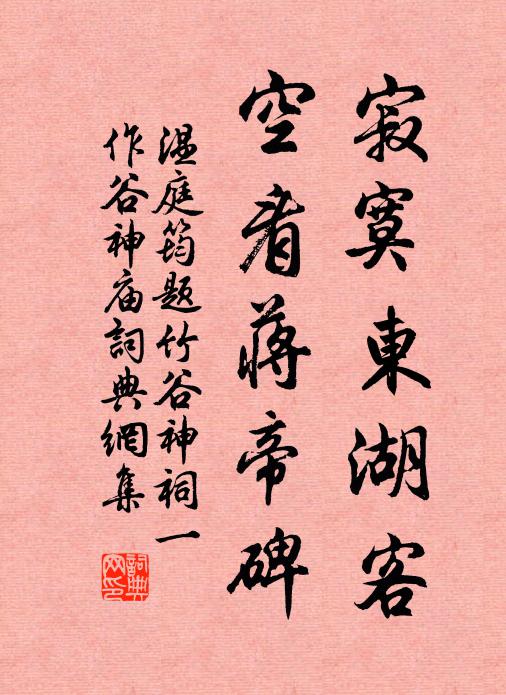 寂寞東湖客
空看蔣帝碑
温庭筠題竹谷神祠一
作谷神庙詞典網集
詞典网印